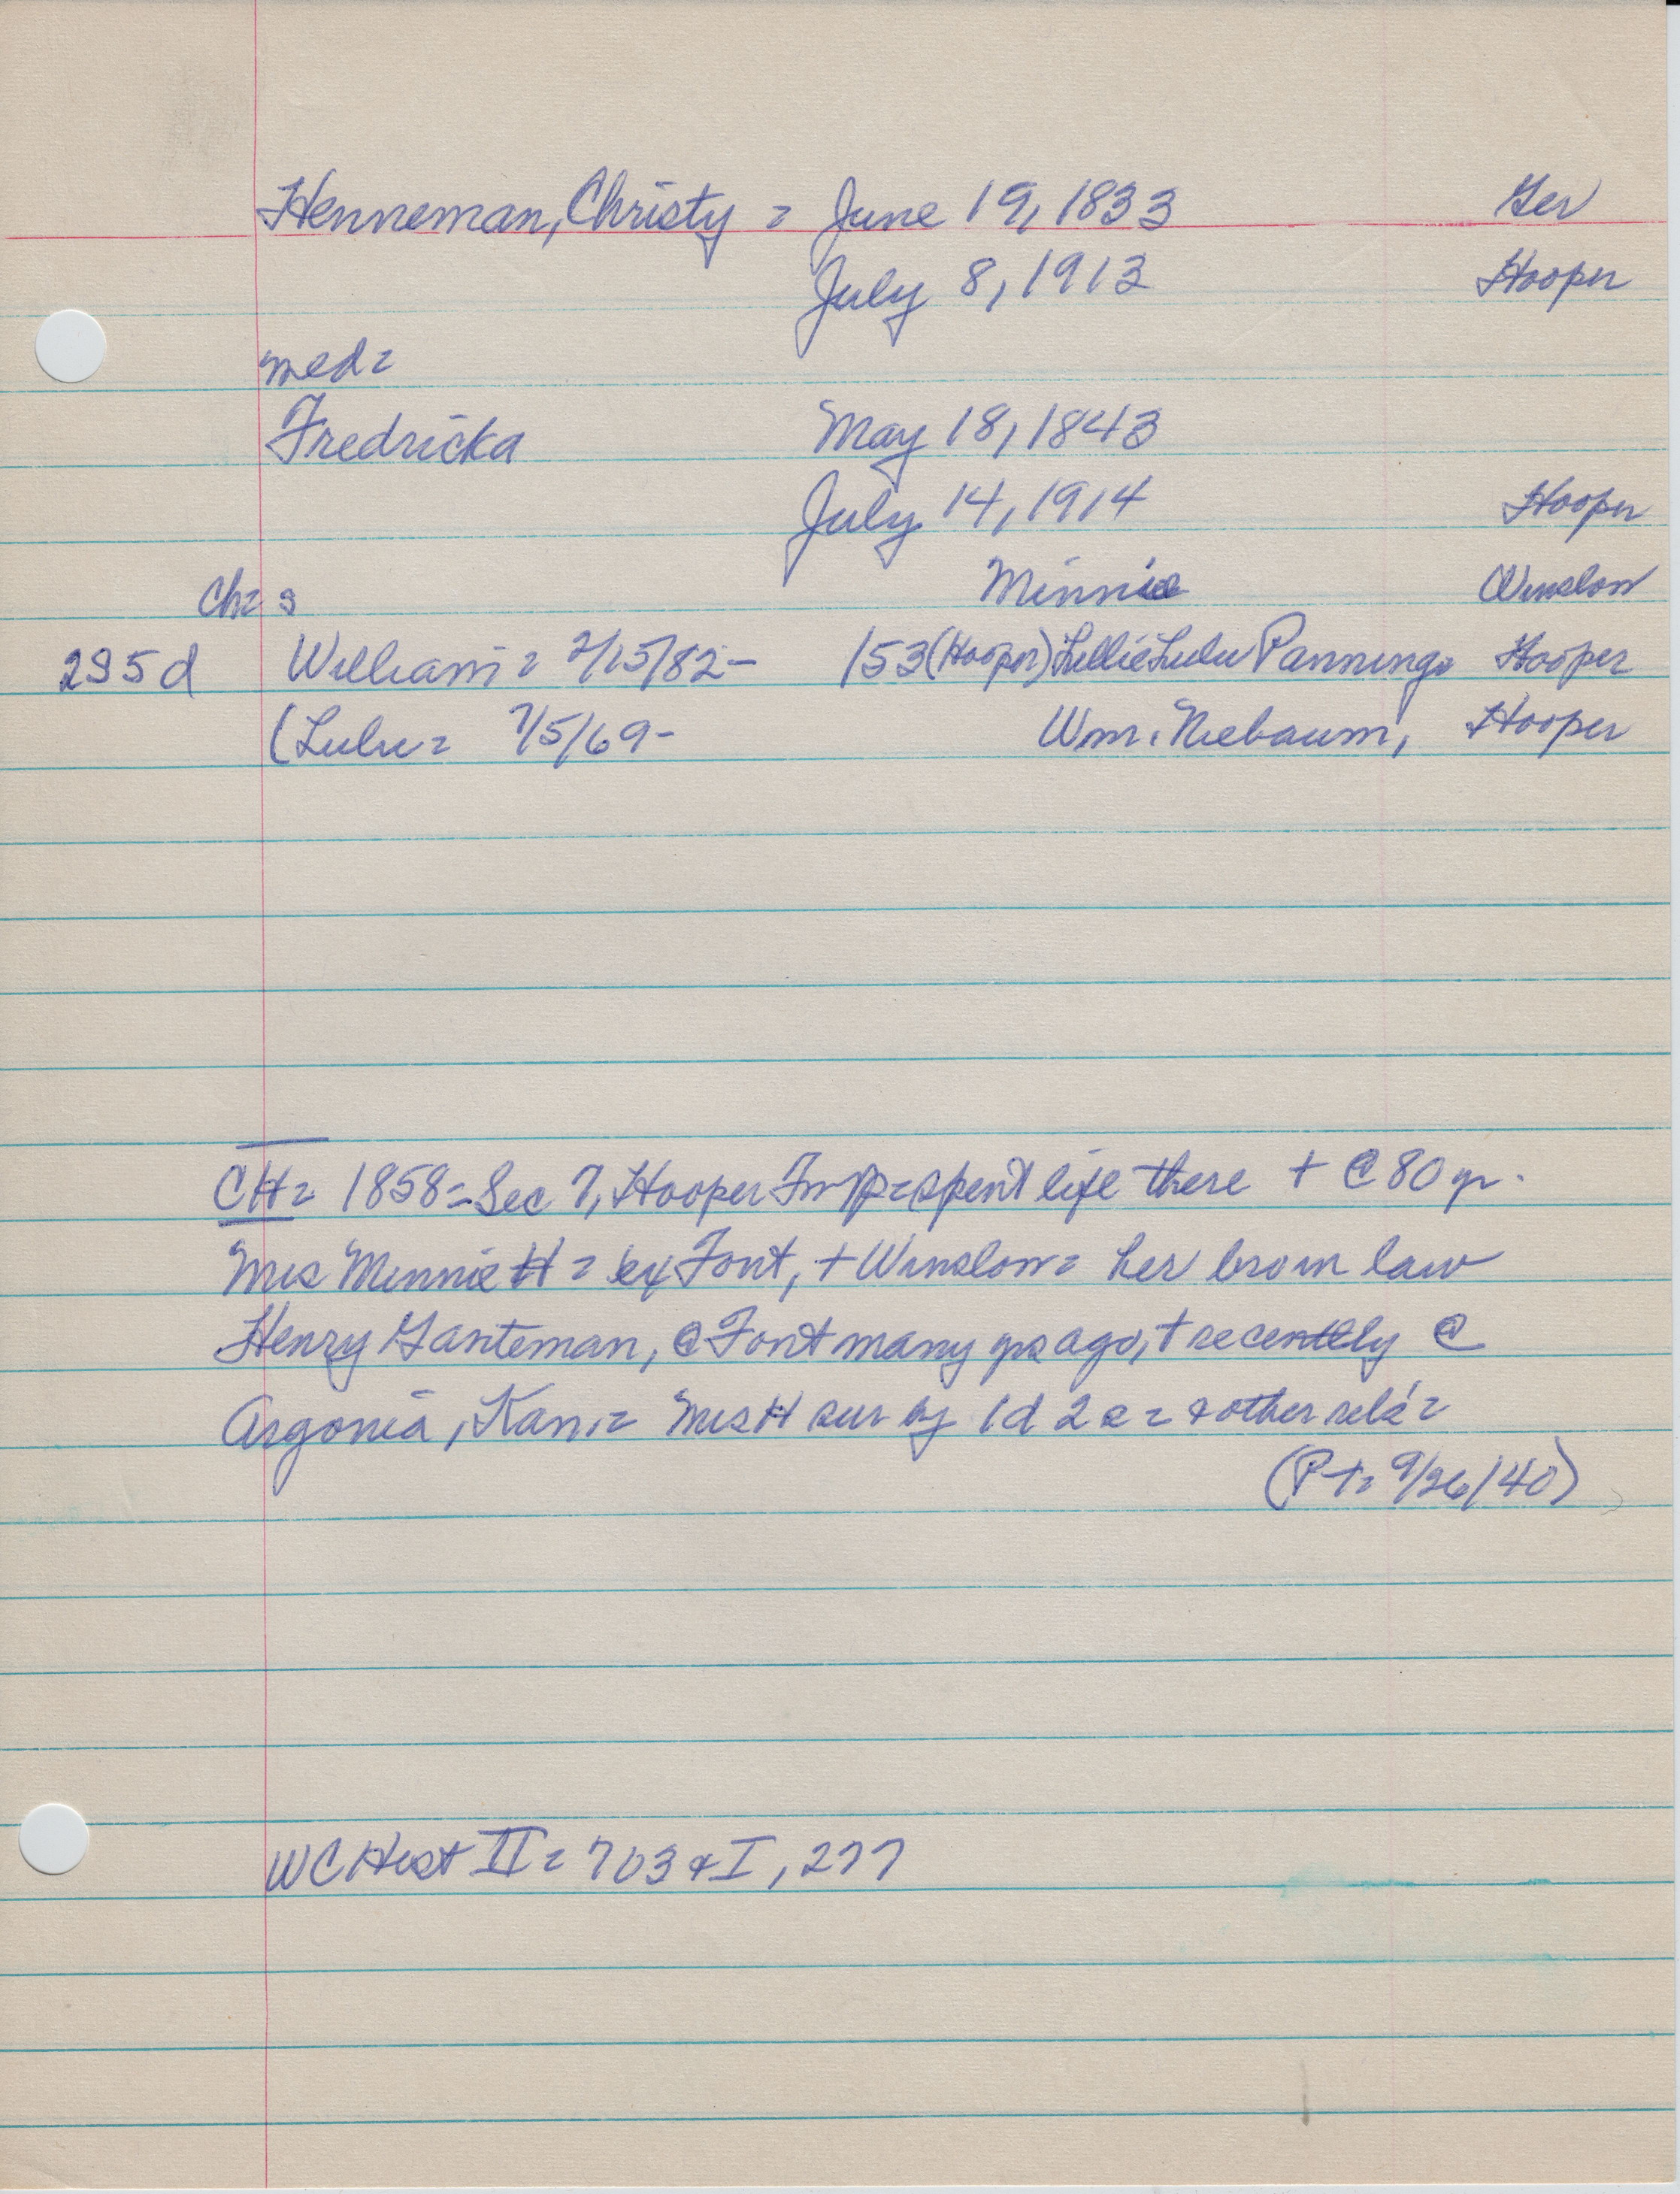 Henneman, Christy = June 19, 1833 Ger
July 8, 1913 Hooper
med=
Fredricka May 18, 1843
July 14, 1914 Hooper
Ch= s Minnie Winslow
295d William = 2/15/82- 153 (Hooper) Lillie Lulu Panning Hooper
(Lulu = 7/5/69- Wm. Niebaum, Hooper
CH= 1858= Sec 7, Hooper Twp = spent life there + @ 80 yr.
Mrs Minnie H = ex Font, + Winslow = her bro in law
Henry Ganteman, @ Font many yrs ago, + recently @
Argonia, Kan. = Mrs H sur by 1d 2s = & other rels =
(Pt= 9/26/40)
WC Hist II = 703 & I, 277